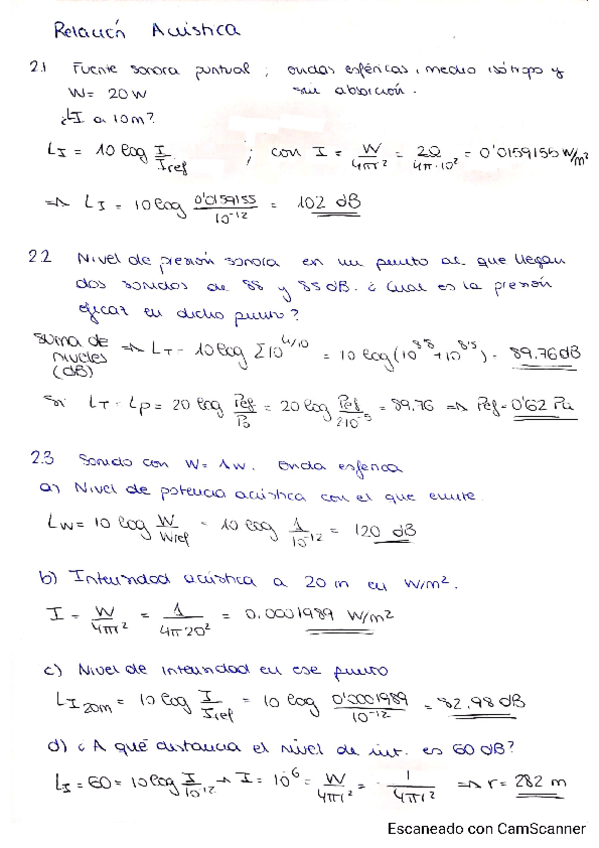 Relación Acústica
2.1 Fuente sonora puntual; ondas esféricas, medio isótropo y
W= 20 W sin absorción.
¿LI a 10m?
LI = 10 log I/Iref ; con I = W/4πr² = 20/4π·10² = 0'0159155 W/m²
⇒ LI = 10 log 0'0159155/10⁻¹² = 102 dB
2.2 Nivel de presión sonora en un punto al que llegan
dos sonidos de 88 y 85 dB. ¿Cual es la presión
eficaz en dicho punto?
suma de niveles (dB) ⇒ LT = 10 log Σ10^(Li/10) = 10 log (10^8'8 + 10^8'5) = 89.76 dB
si LT = LP = 20 log Pef/P0 = 20 log Pef/2·10⁻⁵ = 89.76 ⇒ Pef = 0'62 Pa
2.3 Sonido con W= 1w. Onda esferica
a) Nivel de potencia acústica con el que emite.
LW = 10 log W/Wref = 10 log 1/10⁻¹² = 120 dB
b) Intensidad acústica a 20 m en W/m².
I = W/4πr² = 1/4π20² = 0.0001989 W/m²
c) Nivel de intensidad en ese punto
LI20m = 10 log I/Iref = 10 log 0'0001989/10⁻¹² = 82.98 dB
d) ¿A qué distancia el nivel de int. es 60 dB?
LI = 60 = 10 log I/10⁻¹² → I = 10⁻⁶ = W/4πr² = 1/4πr² ⇒ r = 282 m
Escaneado con CamScanner